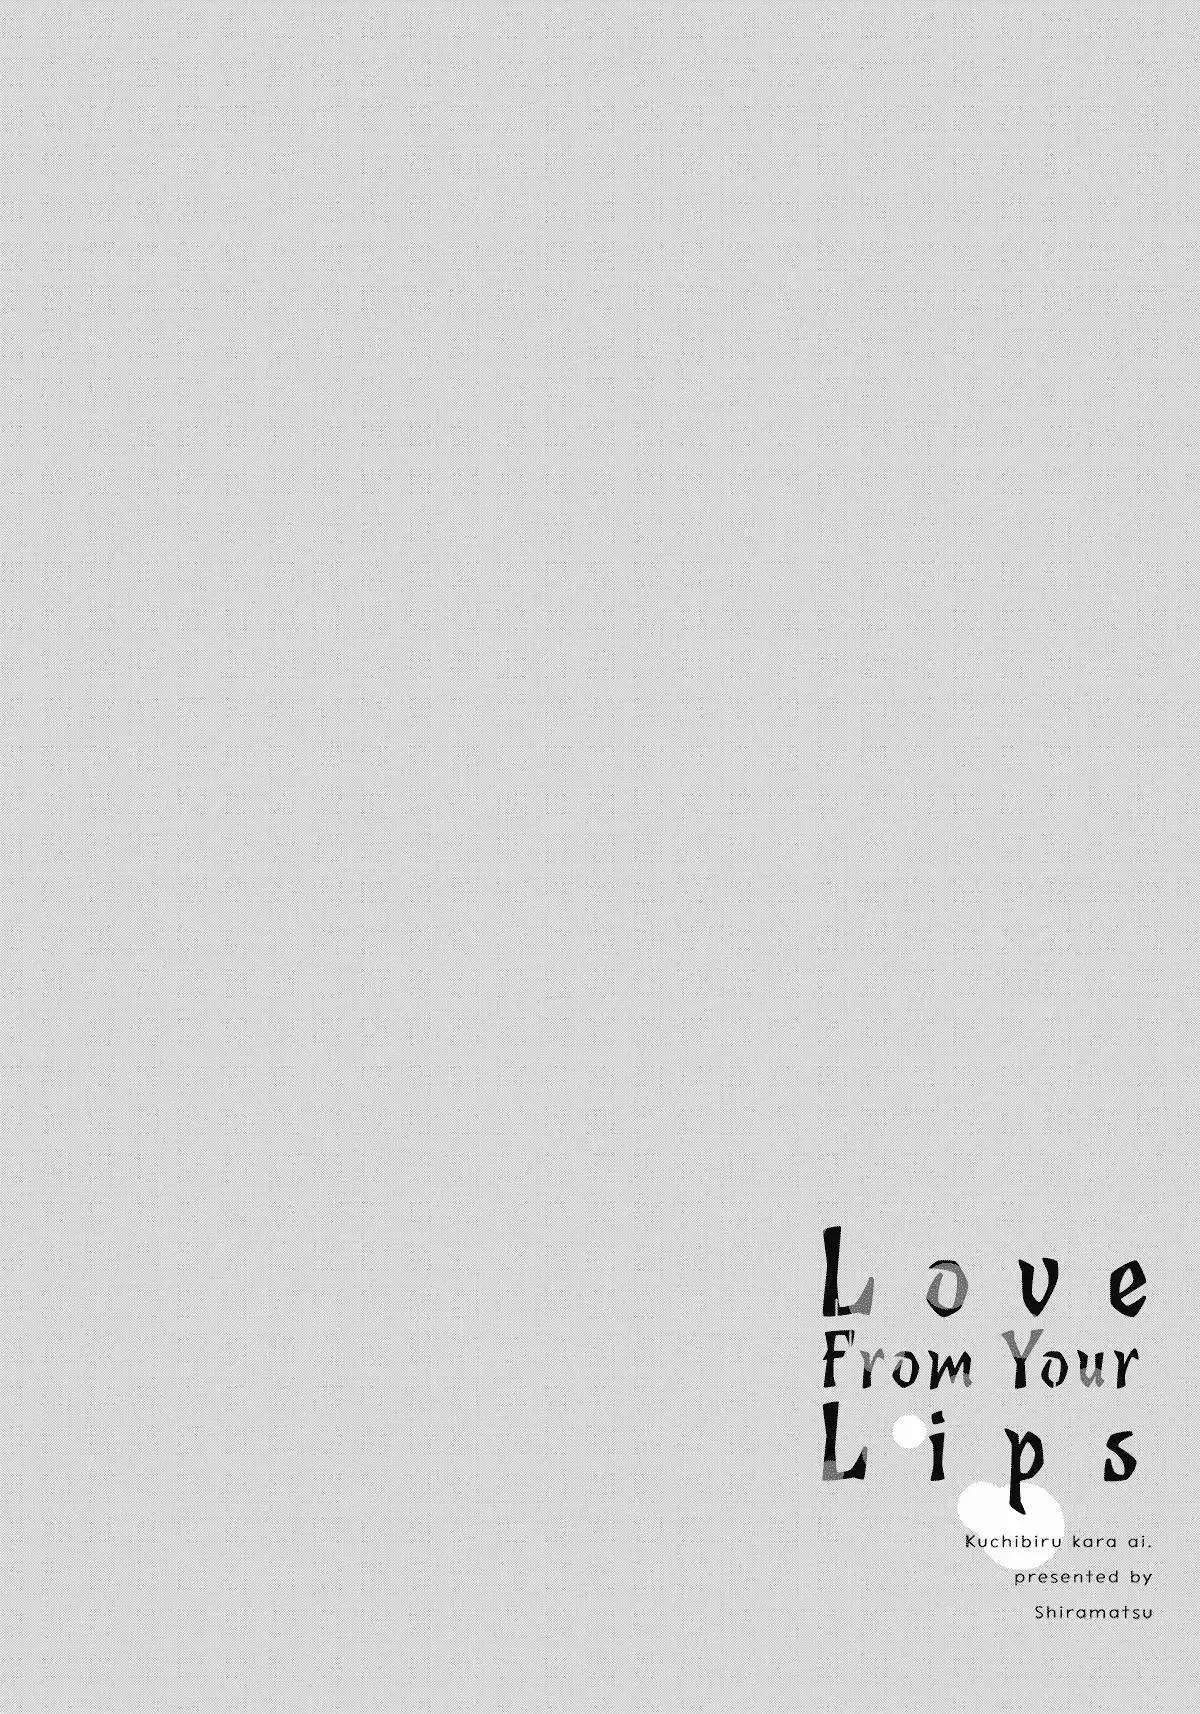 Love
From Your
Lips
Kuchibiru kara ai.
presented by
Shiramatsu